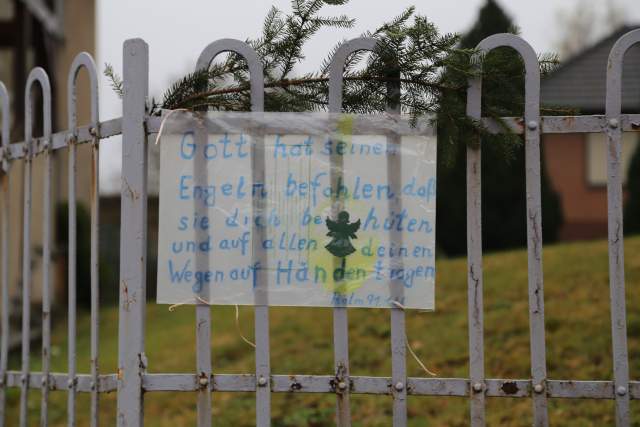 Gott hat seinen
Engeln befohlen, daß
sie dich behüten
und auf allen deinen
Wegen auf Händen tragen
Psalm 91